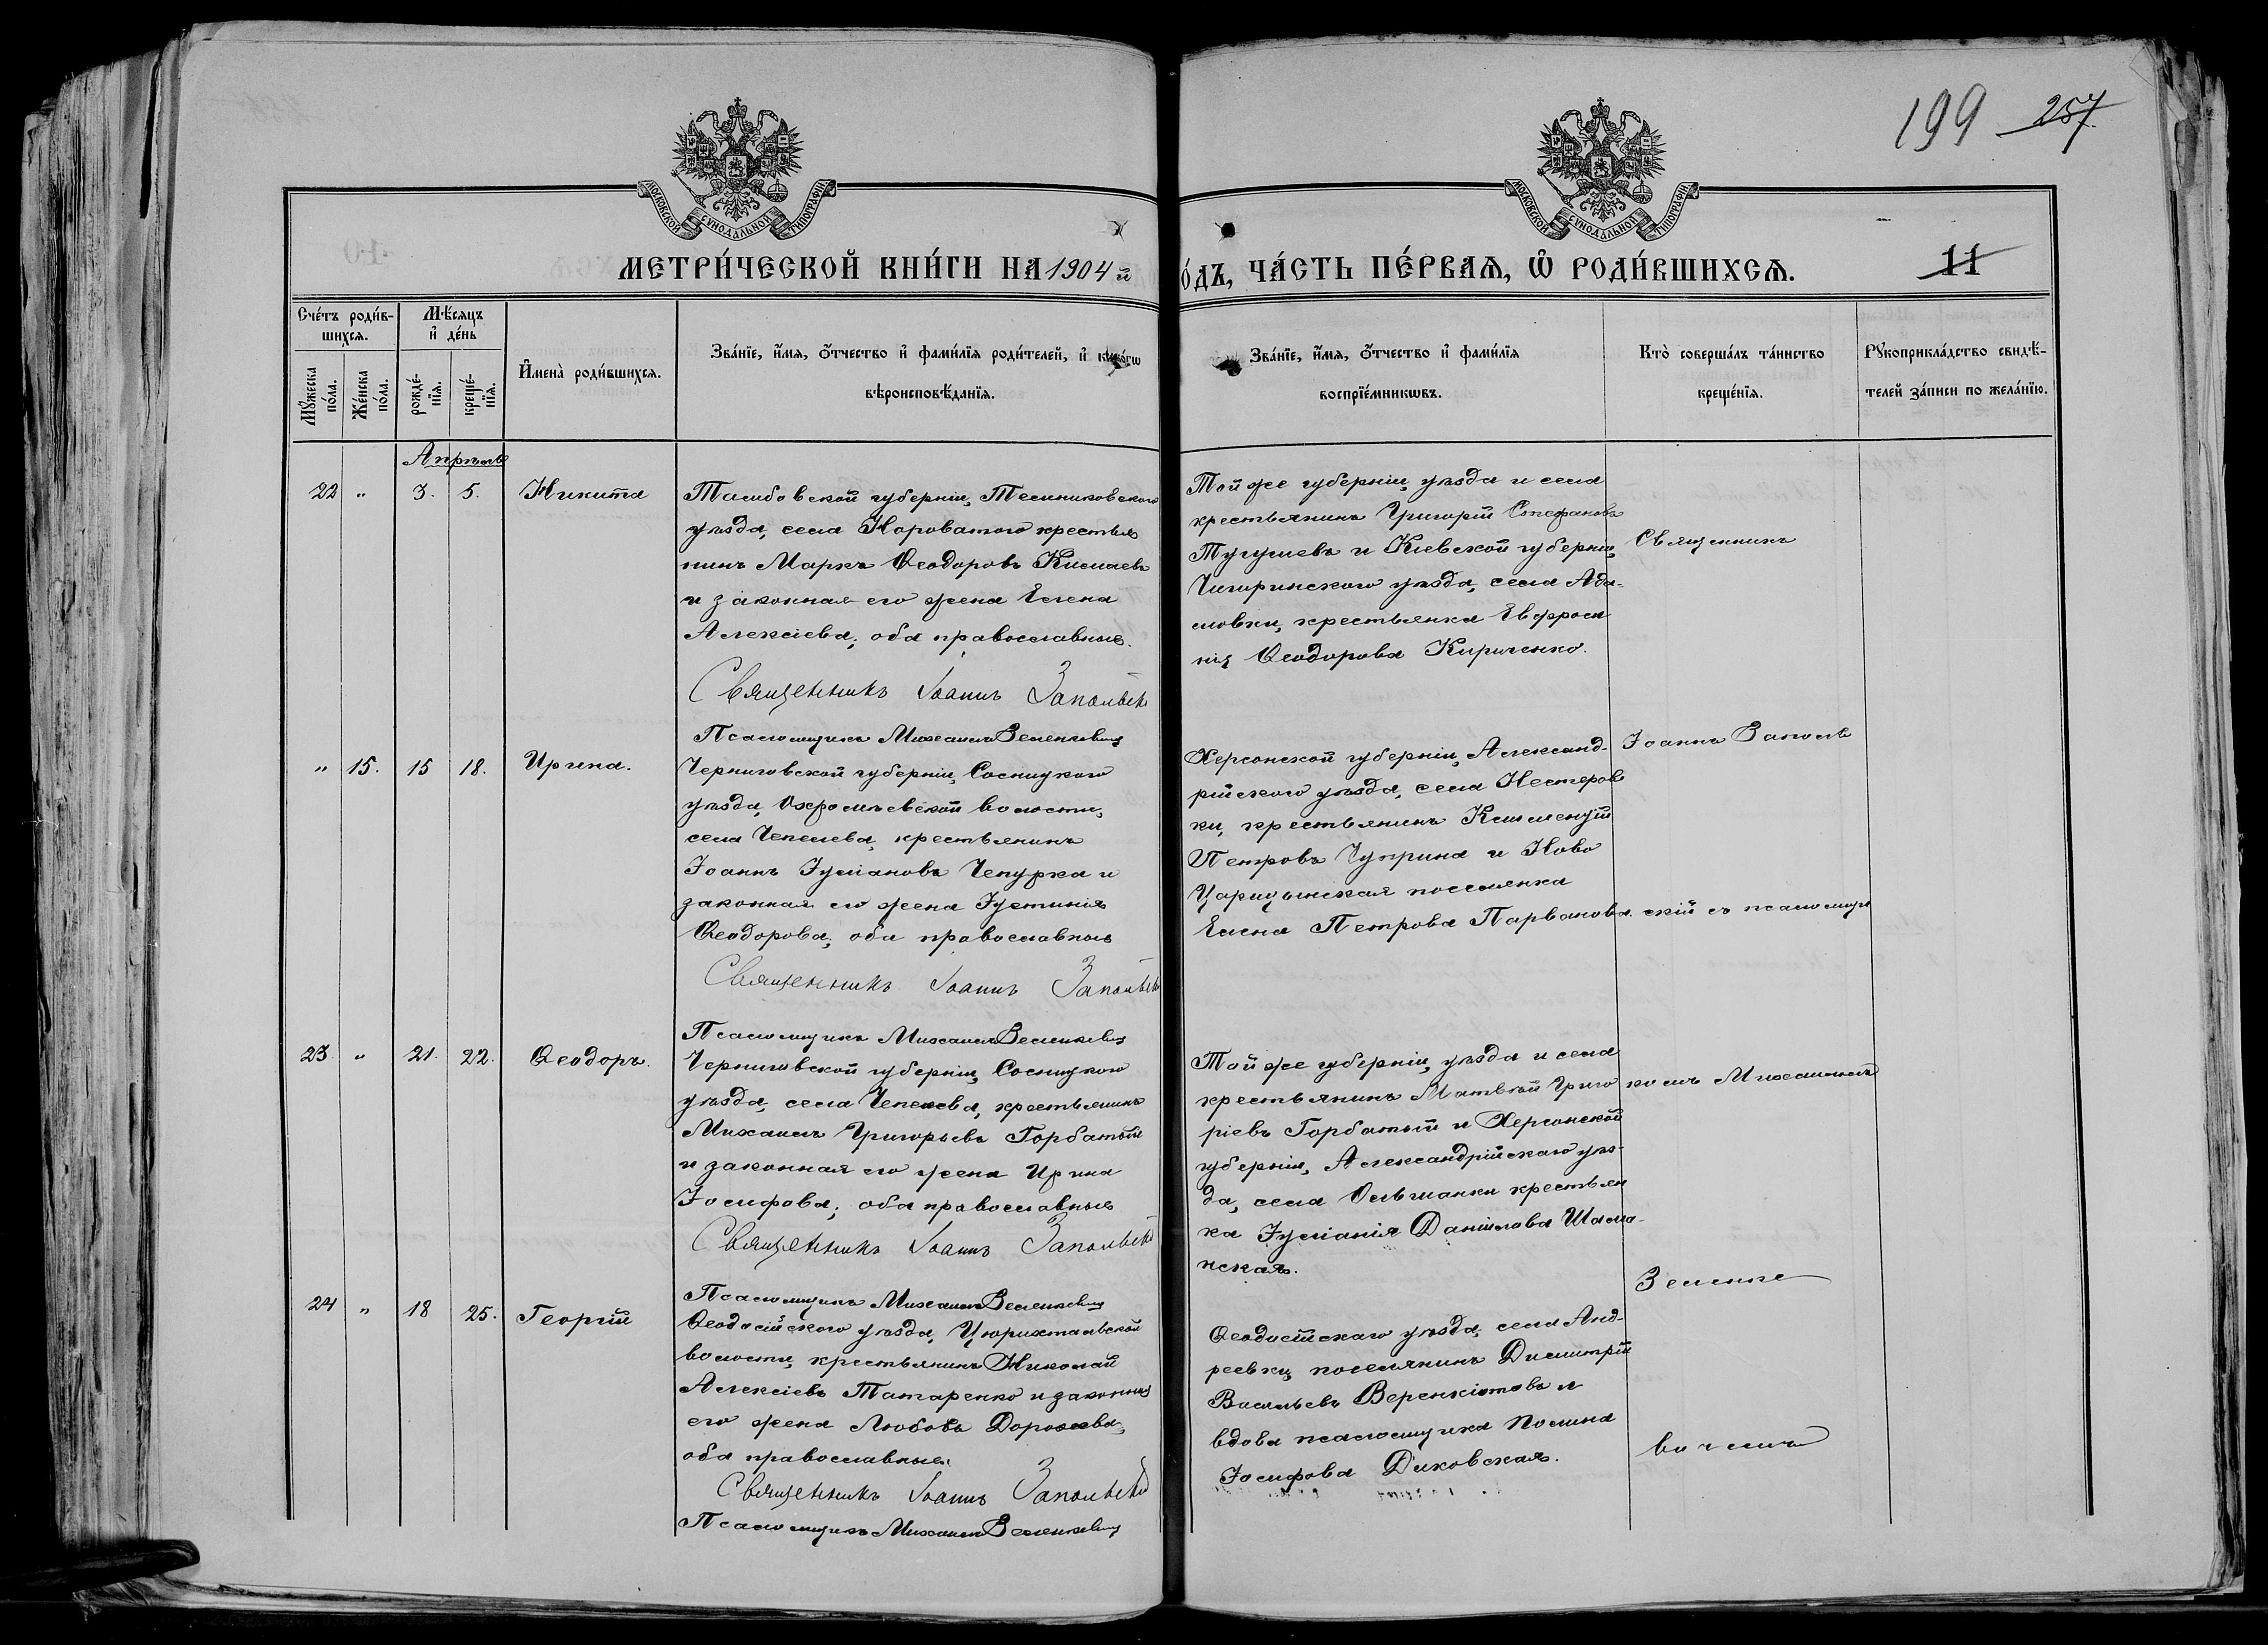 199 257
МОСКОВСКОЙ СѴНОДАЛЬНОЙ ТИПОГРАФІИ
МОСКОВСКОЙ СѴНОДАЛЬНОЙ ТИПОГРАФІИ
МЕТРИ́ЧЕСКОЙ КНИ́ГИ НА 1904 й
О́ДЪ, ЧА́СТЬ ПЕ́РВАѦ, Ѡ҆ РОДИ́ВШИХСѦ.
11
Сче́тъ роди́в-
шихсѧ.
Мѣ́сѧцъ
и҆ де́нь
Мꙋ́жеска
по́ла.
Же́нска
по́ла.
рожде́-
нїѧ.
креще́-
нїѧ.
И҆мена̀ роди́вшихсѧ.
Зва́нїе, и҆́мѧ, ѻ҆́тчество и҆ фами́лїѧ роди́телей, и҆ како́гѡ
вѣроисповѣ́данїѧ.
Зва́нїе, и҆́мѧ, ѻ҆́тчество и҆ фами́лїѧ
воспрїе́мникѡвъ.
Кто̀ соверша́лъ та́инство
креще́нїѧ.
Рꙋкоприкла́дство свидѣ́-
телей за́писи по жела́нїю.
Апрѣль
22 " 3. 5. Никита
Тамбовской губерніи, Темниковского
уѣзда, села Нороватого крестья
нинъ Маркъ Ѳеодоровъ Кишаевъ
и законная его жена Елена
Алексіева; оба православные.
Священникъ Іоаннъ Запольск
Псаломщикъ Михаилъ Зеленкевич
Той же губерніи, уѣзда и села
крестьянинъ Григорій Стефановъ
и Кіевской губерніи,
Чигиринского уѣзда, села Ада-
мовки, крестьянка Евфроси
нія Ѳеодорова Кириченко.
Священникъ
" 15. 15 18. Ирина.
Черниговской губерніи, Сосницкого
уѣзда, Охромѣевской волости,
села Чепелева, крестьянинъ
Іоаннъ Іуліановъ Чепурка и
законная его жена Іустинія
Ѳеодорова; оба православные
Священникъ Іоаннъ Запольск
Псаломщикъ Михаилъ Зеленкевич
Херсонской губерніи, Александ-
рійского уѣзда, села Нестеров
ки, крестьянинъ Климентій
Петровъ Чуприна и Ново
Царицынская поселянка
Елена Петрова Парванова.
Іоаннъ Заполь
скій съ псаломщи
23 " 21. 22. Ѳеодоръ.
Черниговской губерніи, Сосницкого
уѣзда, села Чепелева, крестьянинъ
Михаилъ Григорьевъ Горбатый
и законная его жена Ирина
Іосифова; оба православные
Священникъ Іоаннъ Запольскій
Псаломщикъ Михаилъ Зеленкевич
Той же губерніи, уѣзда и села
крестьянинъ Матвѣй Григо
ріевъ Горбатый и Херсонской
губерніи, Александрійскаго уѣз-
да, села Ольшанки крестьян
ка Іуліанія Даніилова Шама-
нская.
комъ Михаиломъ
Зеленке
24 " 18 25. Георгій
Ѳеодосійского уѣзда, Цюрихтальской
волости, крестьянинъ Николай
Алексіевъ Татаренко и законная
его жена Любовь Дороѳеева,
оба православные.
Священникъ Іоаннъ Запольскій
Псаломщикъ Михаилъ Зеленкевич
Ѳеодосійскаго уѣзда, села Анд-
реевки, поселянинъ Димитрій
Васильевъ и
вдова псаломщика
Іосифова Диковская.
вичемъ